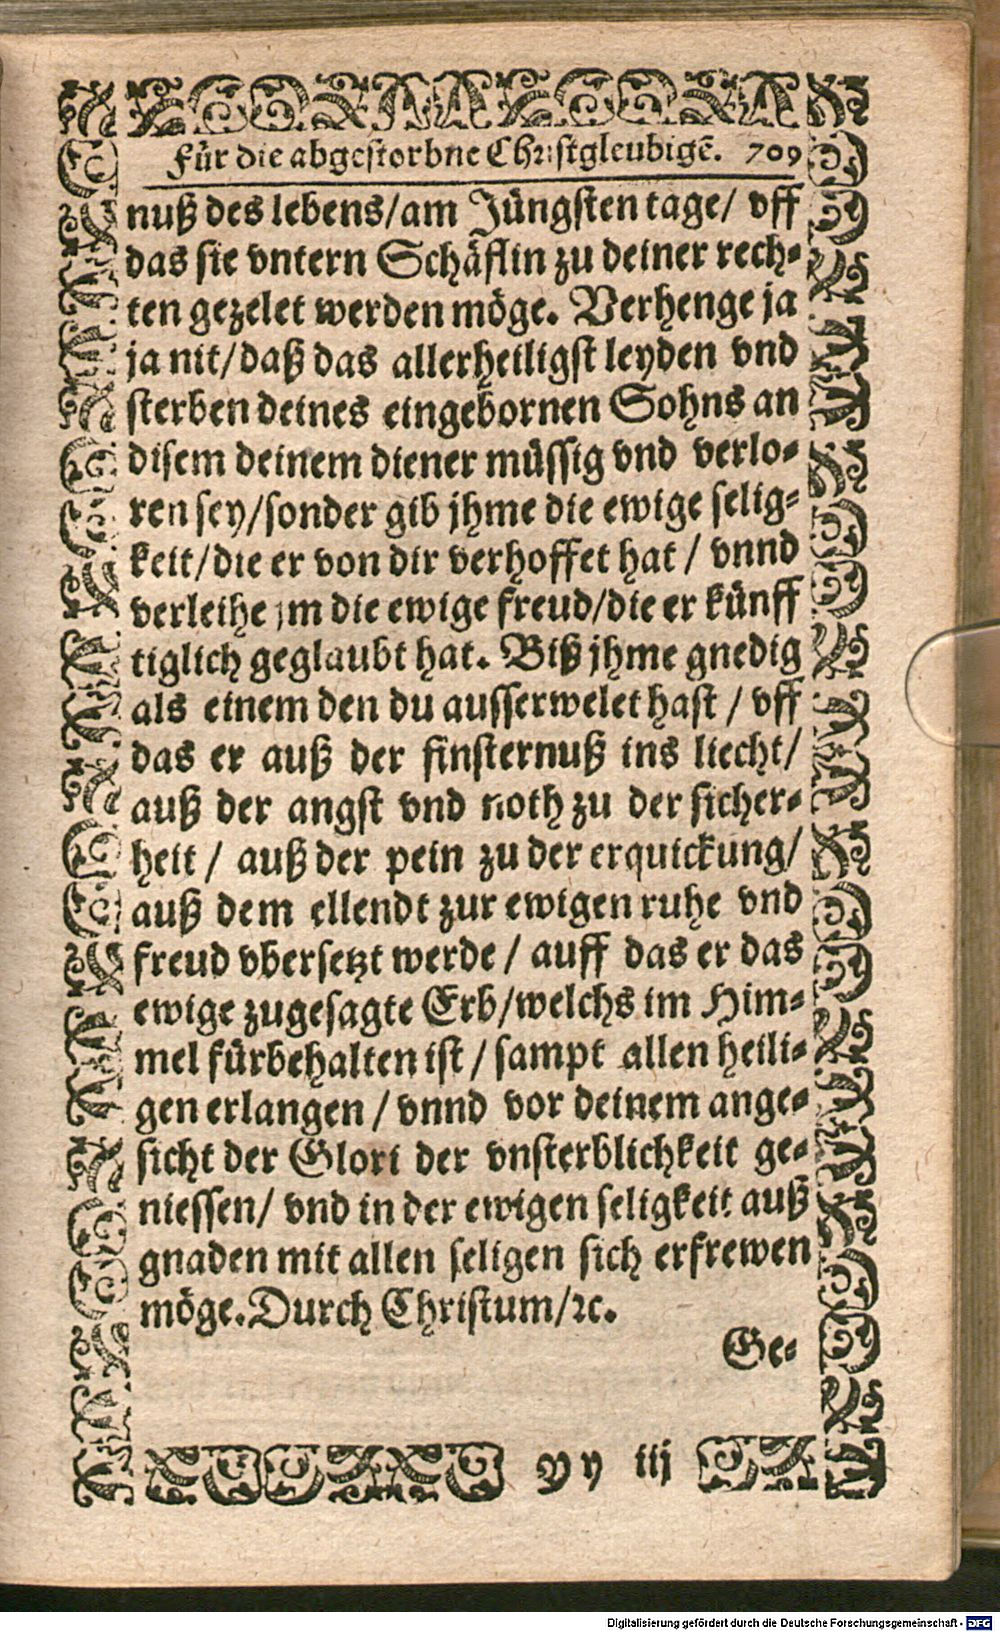 Für die abgestorbne Christgleubigẽ. 709
nuß des lebens/am Jüngsten tage/ vff
das sie vntern Schäflin zu deiner rech-
ten gezelet werden möge. Verhenge ja
ja nit/daß das allerheiligst leyden vnd
sterben deines eingebornen Sohns an
disem deinem diener müssig vnd verlo-
ren sey/sonder gib jhme die ewige selig-
keit/die er von dir verhoffet hat / vnnd
verleihe jm die ewige freud/die er künff
tiglich geglaubt hat. Biß jhme gnedig
als einem den du ausserwelet hast / vff
das er auß der finsternuß ins liecht/
auß der angst vnd noth zu der sicher-
heit / auß der pein zu der erquickung/
auß dem ellendt zur ewigen ruhe vnd
freud vbersetzt werde / auff das er das
ewige zugesagte Erb/welchs im Him-
mel fürbehalten ist / sampt allen heili-
gen erlangen / vnnd vor deinem ange-
sicht der Glori der vnsterblichkeit ge-
niessen/ vnd in der ewigen seligkeit auß
gnaden mit allen seligen sich erfrewen
möge. Durch Christum/ꝛc.
Ge-
Yy iij
Digitalisierung gefördert durch die Deutsche Forschungsgemeinschaft - DFG